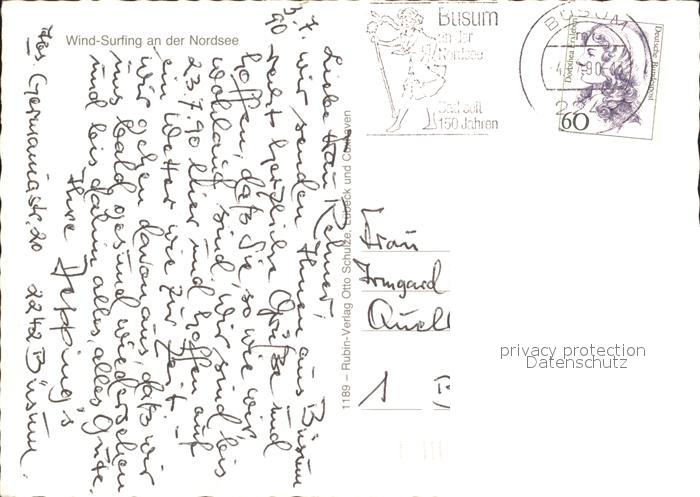 Wind-Surfing an der Nordsee
3.7.
90
Liebe Frau Rehner,
wir senden Ihnen aus Büsum
recht herzliche Grüße und
hoffen, daß Sie, so wie wir
wohlauf sind. Wir sind bis
23.7.90 hier und hoffen auf
ein Wetter wie zur Zeit.
Wir gehen davon aus, daß wir
uns bald gesund wiedersehen
und bis dahin alles, alles Gute.
Ihre
Hs Germaniastr. 20 2242 Büsum.
1189 – Rubin-Verlag Otto Schulze, Lübeck und Cuxhaven
Büsum
an der
Nordsee
Bad seit
150 Jahren
BÜSUM
2242
Dorothea Erxleben
Deutsche Bundespost
60
Frau
Irmgard
Quell
1
privacy protection
Datenschutz